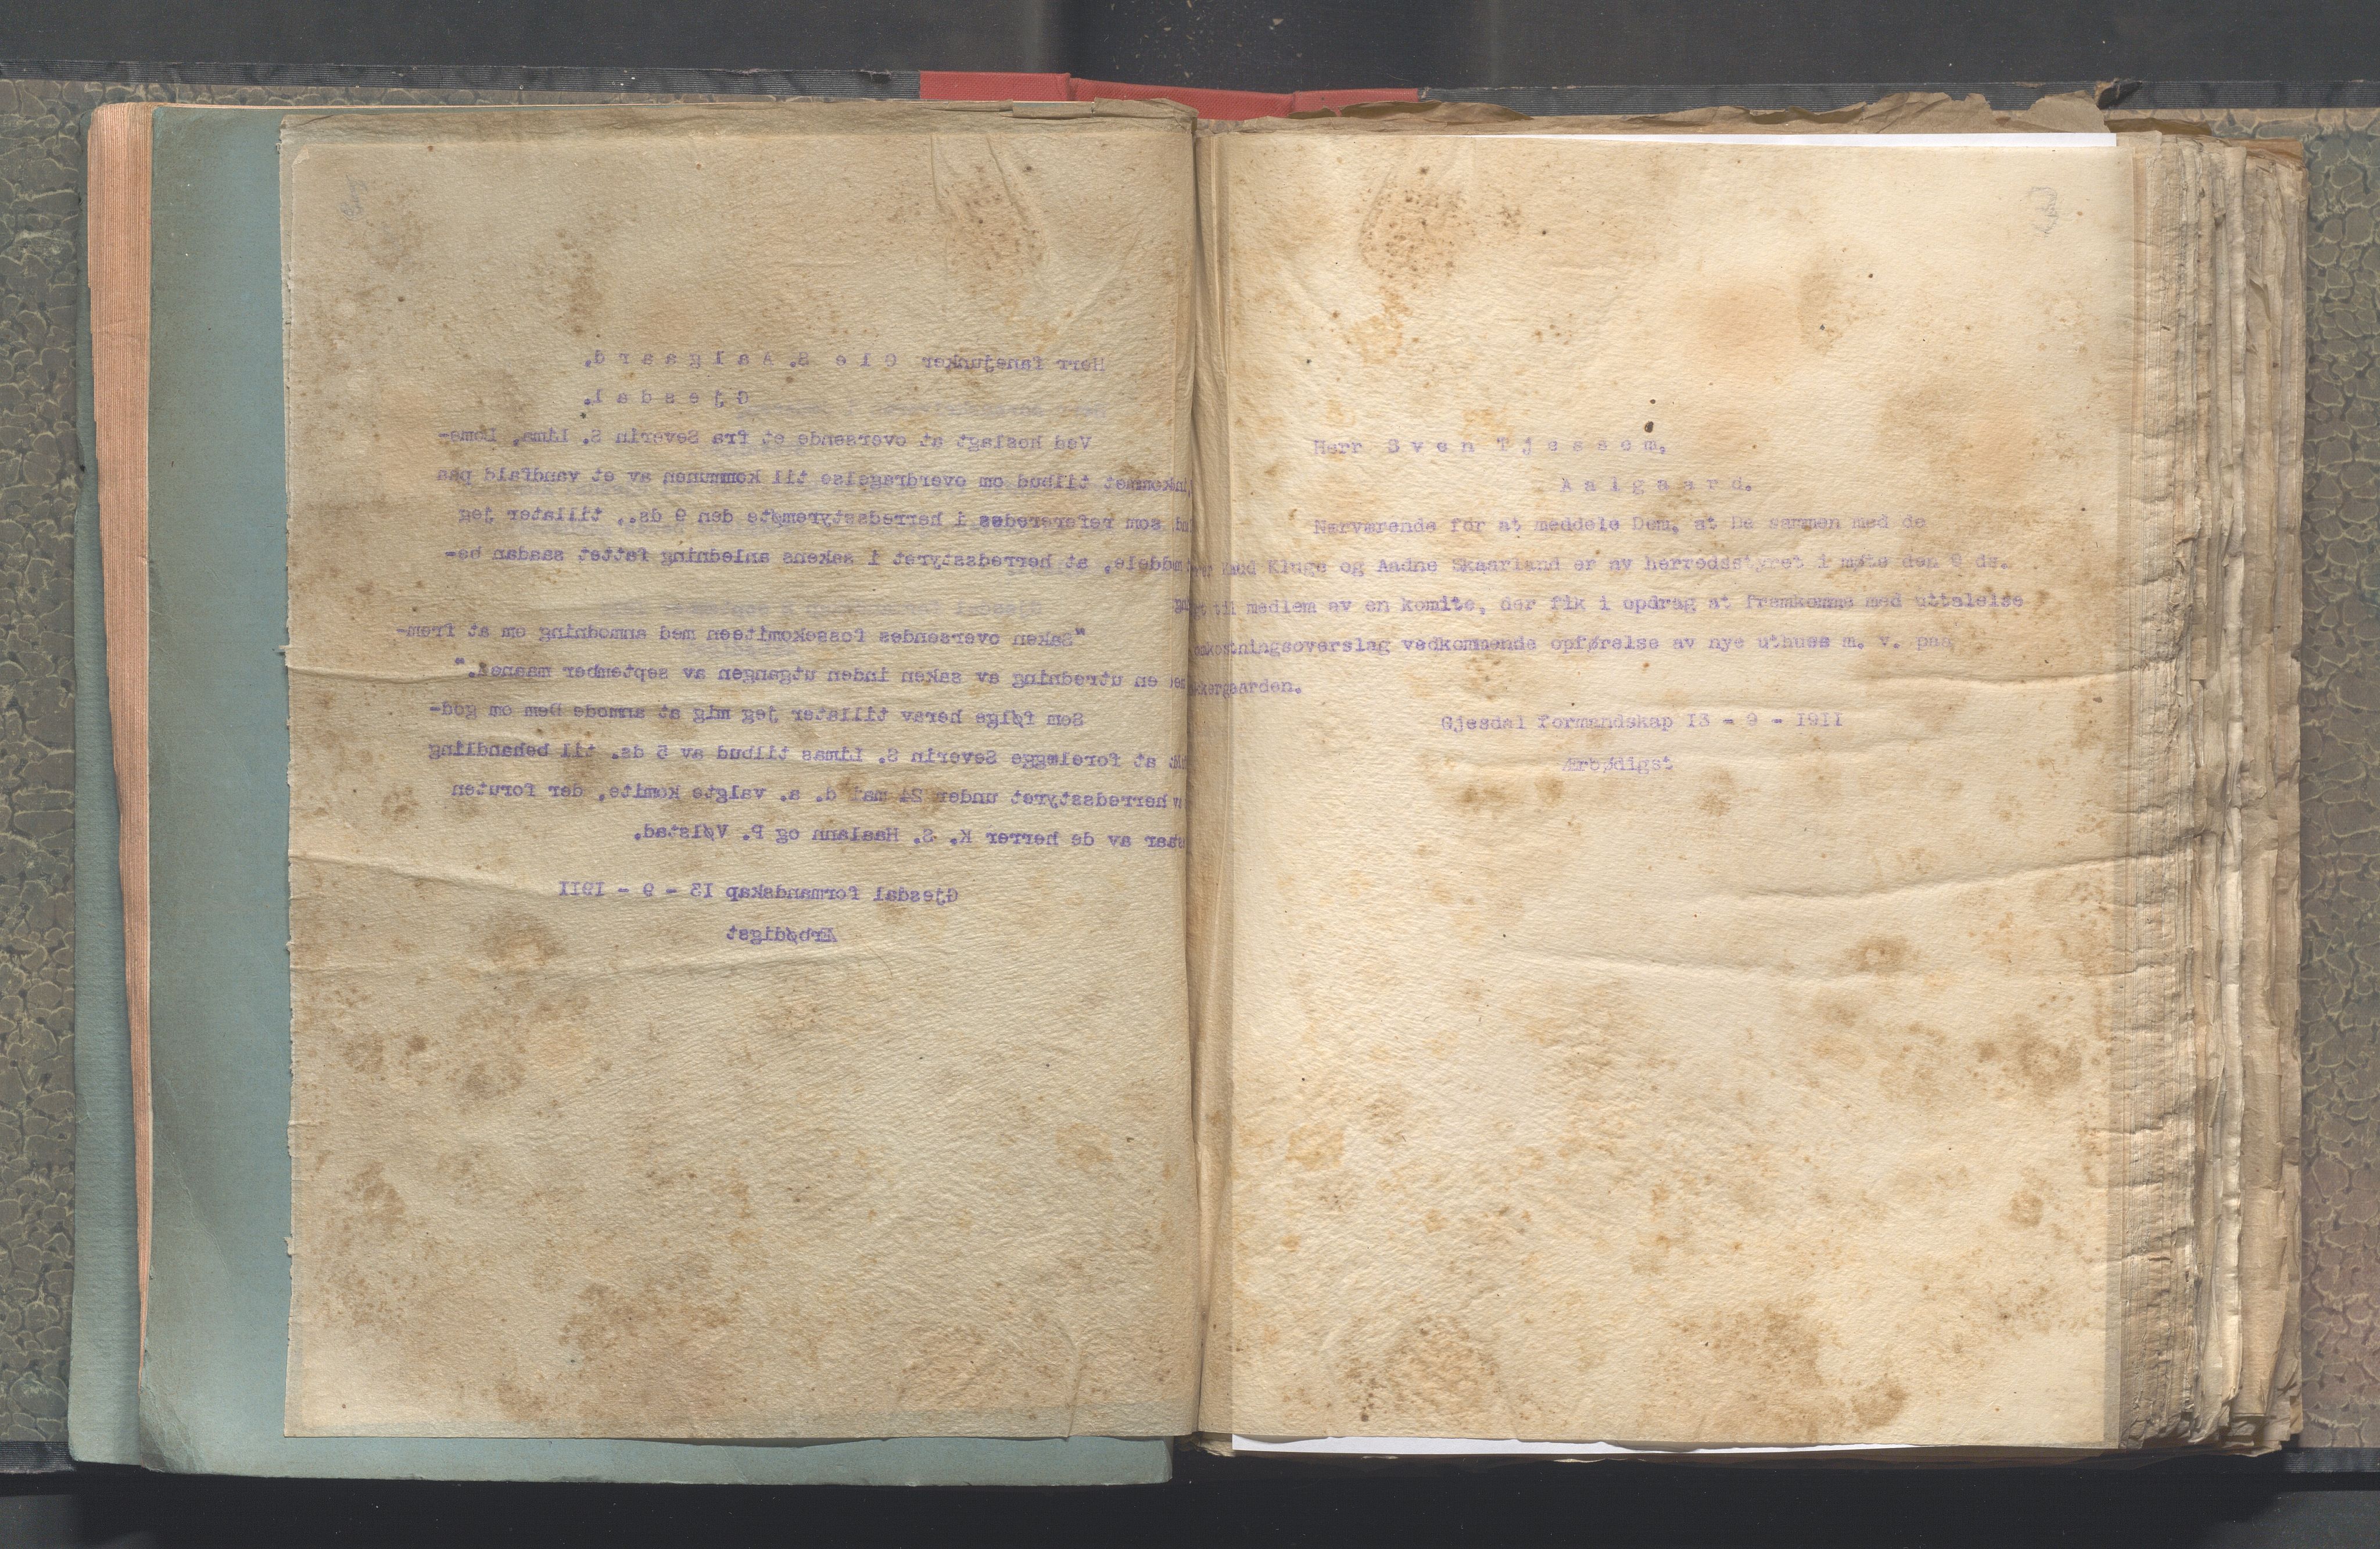 Herr fanejunker Ole S. Aalgaard.
Gjesdal.
Ved hoslagt at oversende et fra Severin S. Lima, Lome-
indkommet tilbud om overdragelse til kommunen av et vandfald paa
som refereredes i herredsstyremøte den 9 ds., tillater jeg
meddele, at herredsstyret i sakens anledning fattet saadan be-
"Saken oversendes fossekomiteen med anmodning om at frem-
en utredning av saken inden utgangen av september maaned."
Som følge herav tillater jeg mig at anmode Dem om god-
at forelægge Severin S. Limas tilbud av 5 ds. til behandling
herredsstyret under 24 mai d. a. valgte komite, der foruten
av de herrer K. S. Haaland og P. Vølstad.
Gjesdal formandskap 13 - 9 - 1911
Ærbødigst
Herr Sven Tjessem,
Aalgaard.
Nærværende for at meddele Dem, at De sammen med de
Knud Kluge og Aadne Skaarland er av herredsstyret i møte den 9 ds.
til medlem av en komite, der fik i opdrag at fremkomme med uttalelse
omkostningsoverslag vedkommende opførelse av nye uthuss m. v. paa
Gjesdal formandskap 13 - 9 - 1911
Ærbødigst